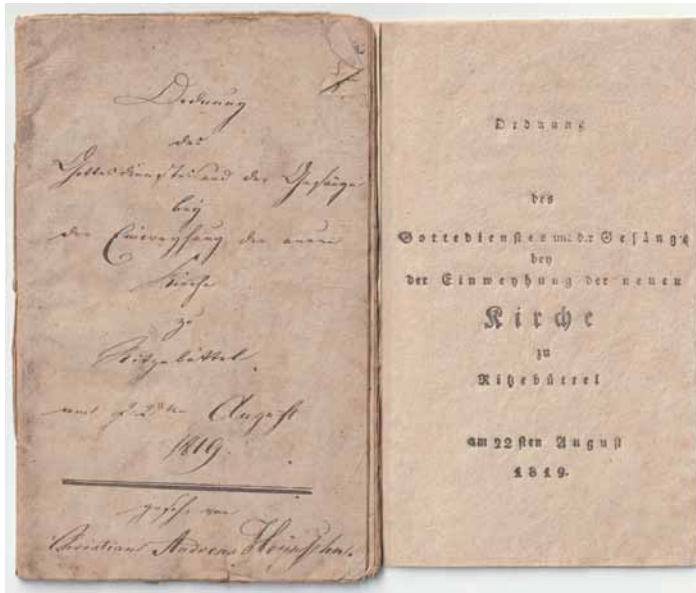 Ordnung
des
Gottesdienstes und der Gesänge
bey
der Einweyhung der neuen
Kirche
zu
Ritzebüttel
am 22sten August
1819.
Christian Andreas
Ordnung
des
Gottedienstes und der Gesänge
bey
der Einweyhung der neuen
Kirche
zu
Ritzebüttel
am 22sten August
1819.